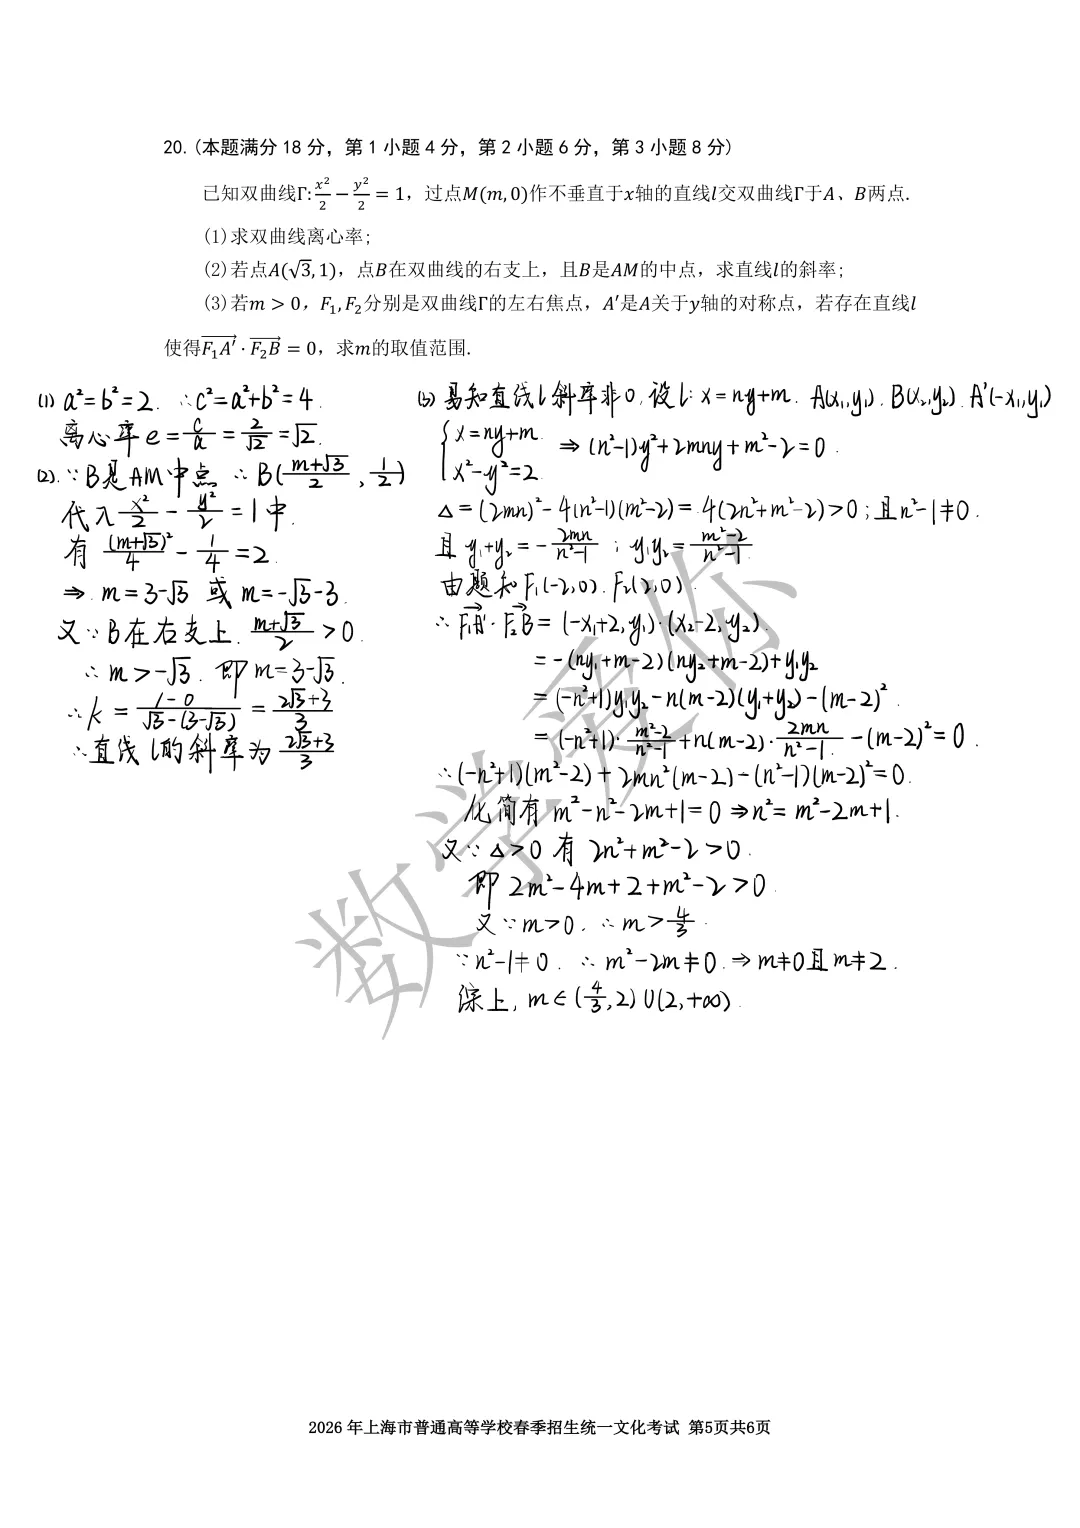 20.(本题满分 18 分，第 1 小题 4 分，第 2 小题 6 分，第 3 小题 8 分)
已知双曲线Γ: x²/2 − y²/2 = 1，过点M(m, 0)作不垂直于x轴的直线l交双曲线Γ于A、B两点.
(1)求双曲线离心率;
(2)若点A(√3, 1)，点B在双曲线的右支上，且B是AM的中点，求直线l的斜率;
(3)若m > 0，F₁, F₂分别是双曲线Γ的左右焦点，A′是A关于y轴的对称点，若存在直线l
使得F₁A′→ · F₂B→ = 0，求m的取值范围.
(1) a²=b²=2. ∴c²=a²+b²=4.
离心率 e=c/a=2/√2=√2.
(2). ∵B是AM中点 ∴B((m+√3)/2, 1/2)
代入 x²/2 − y²/2 = 1中.
有 (m+√3)²/4 − 1/4 = 2.
⇒ m=3-√3 或 m=-√3-3.
又∵B在右支上. (m+√3)/2 > 0.
∴m>-√3. 即m=3-√3.
∴k = (1-0)/(√3-(3-√3)) = (2√3+3)/3
∴直线l的斜率为 (2√3+3)/3
(3) 易知直线l斜率非0,设l: x=ny+m. A(x₁,y₁). B(x₂,y₂). A′(-x₁,y₁)
{x=ny+m. x²-y²=2. ⇒ (n²-1)y²+2mny+m²-2=0.
△=(2mn)²-4(n²-1)(m²-2)=4(2n²+m²-2)>0;且n²-1≠0.
且 y₁+y₂=-2mn/(n²-1) ; y₁y₂=(m²-2)/(n²-1)
由题知F₁(-2,0). F₂(2,0).
∴F₁A′→·F₂B→=(-x₁+2,y₁)·(x₂-2,y₂).
=-(ny₁+m-2)(ny₂+m-2)+y₁y₂
=(-n²+1)y₁y₂-n(m-2)(y₁+y₂)-(m-2)².
=(-n²+1)·(m²-2)/(n²-1)+n(m-2)·2mn/(n²-1)-(m-2)²=0.
∴(-n²+1)(m²-2)+2mn²(m-2)-(n²-1)(m-2)²=0.
化简有 m²-n²-2m+1=0 ⇒n²=m²-2m+1.
又∵△>0 有 2n²+m²-2>0.
即 2m²-4m+2+m²-2>0
又∵m>0. ∴m>4/3.
∵n²-1≠0. ∴m²-2m≠0.⇒m≠0且m≠2.
综上, m∈(4/3,2)∪(2,+∞).
数学爱你
2026 年上海市普通高等学校春季招生统一文化考试 第5页共6页